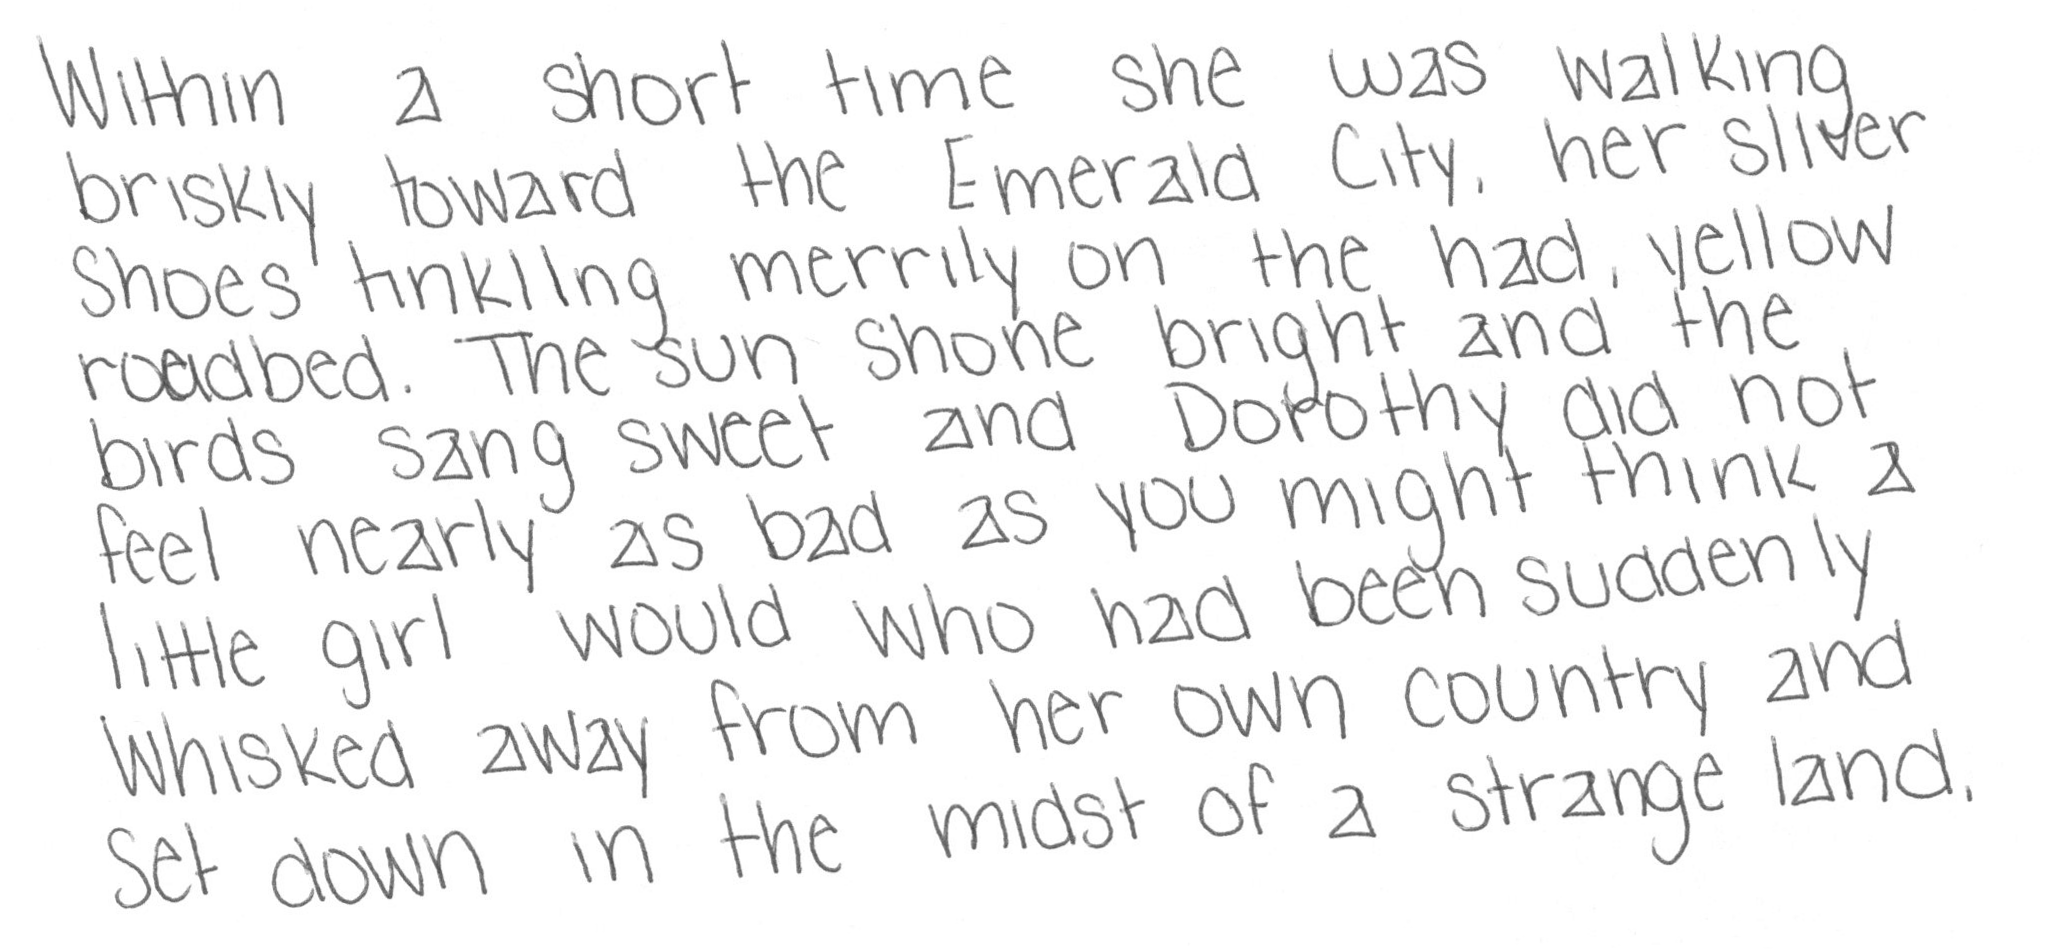 Within a short time she was walking
briskly toward the Emerald City, her sliver
Shoes tinkling merrily on the had, yellow
roadbed. The sun shone bright and the
birds sang sweet and Dorothy did not
feel nearly as bad as you might think a
little girl would who had been suddenly
whisked away from her own country and
Set down in the midst of a strange land.